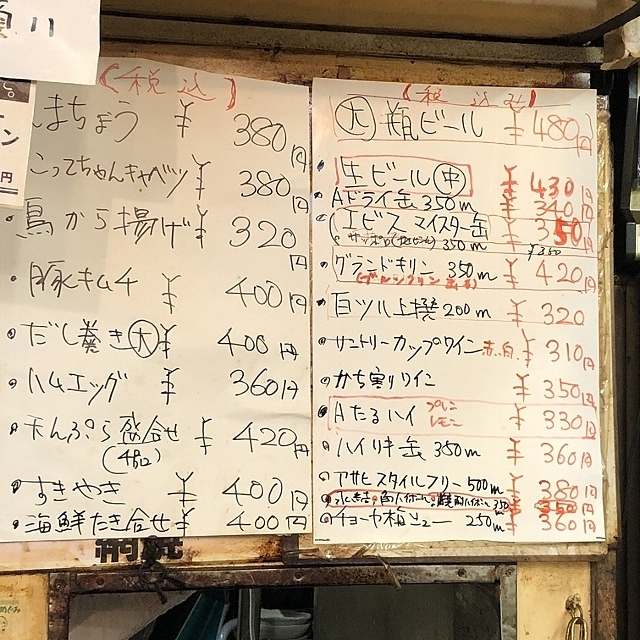 川
ン
円
(税込)
しまちょう ¥380円
こってちゃんキャベツ ¥380円
鳥から揚げ ¥320円
豚キムチ ¥400円
だし巻き(大) ¥400円
ハムエッグ ¥360円
天ぷら盛合せ ¥420円
(4品)
すきやき ¥400円
海鮮たき合せ ¥400円
(税込み)
(大)瓶ビール ¥480円
生ビール(中) ¥430円
Aドライ缶350m ¥340円
エビスマイスター缶 ¥350円
350m ¥350
グランドキリン 350m ¥420円
白ツル上撰200m ¥320
サントリーカップワイン赤.白 ¥310円
かち割りワイン ¥350円
Aたるハイ プレーン レモン ¥330円
ハイリキ缶 350m ¥360円
アサヒスタイルフリー500m ¥380円
350 ¥350円
チョーヤ梅シュー 250m ¥360円